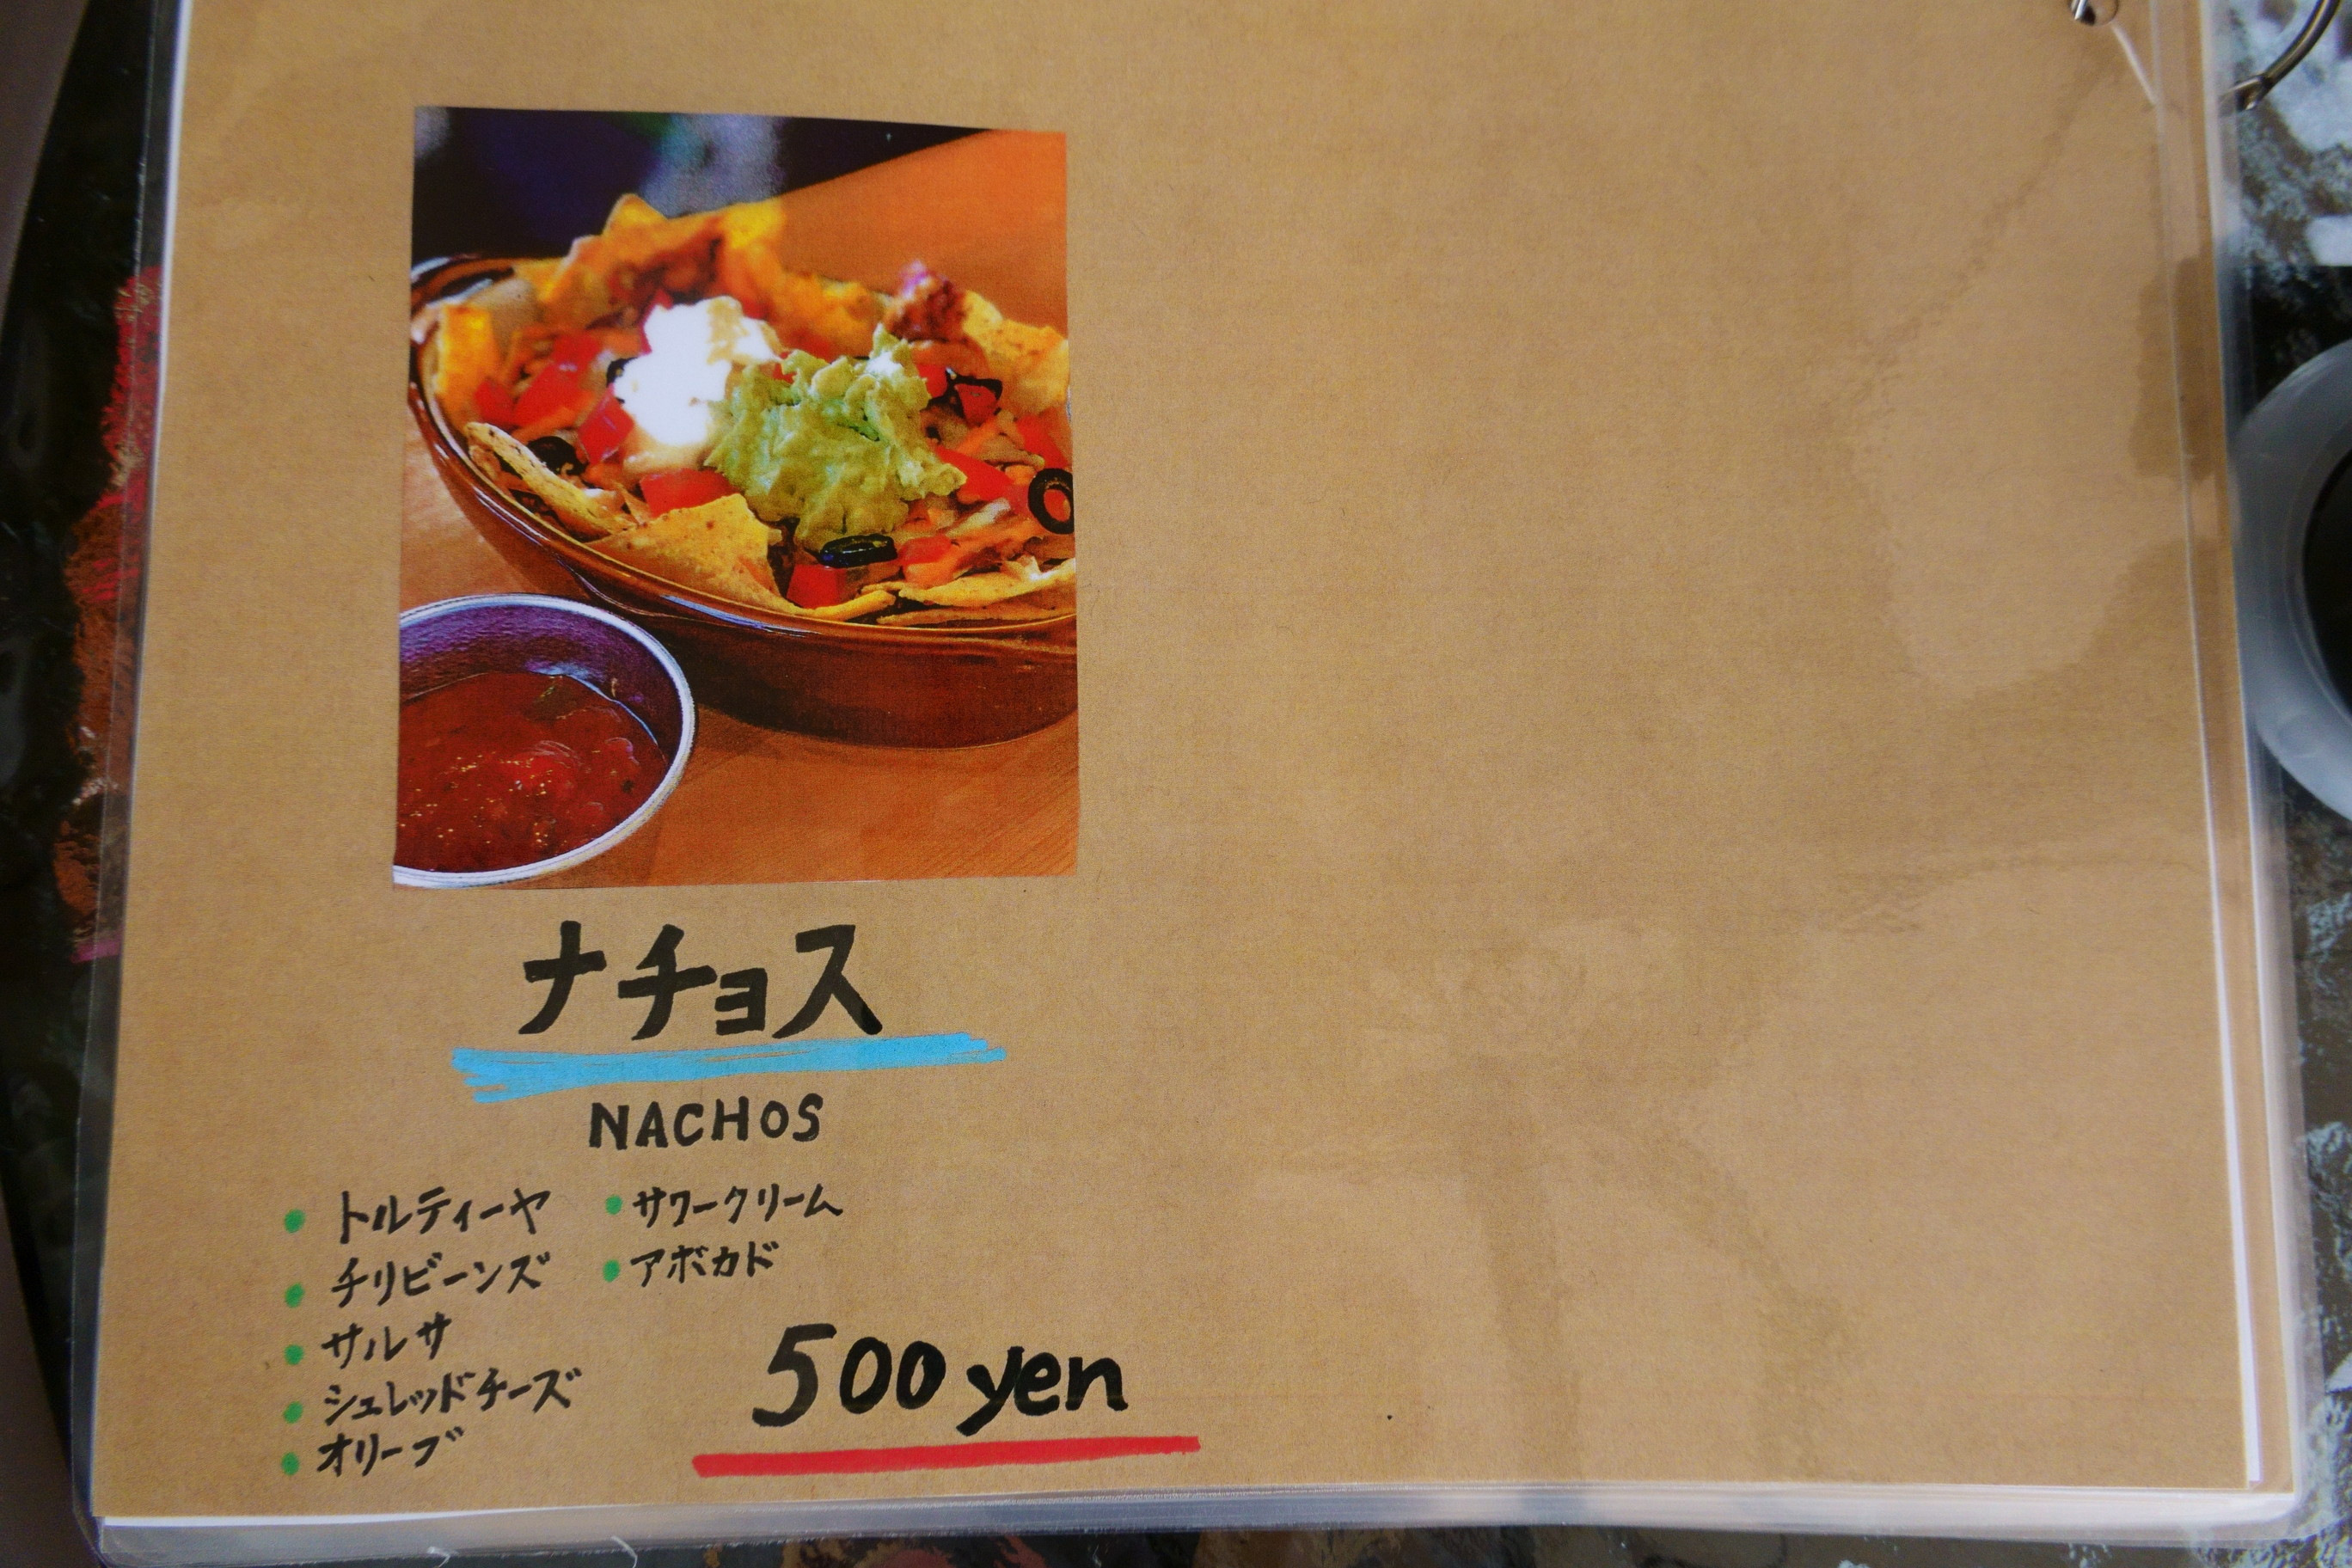 ナチョス
NACHOS
・トルティーヤ
・チリビーンズ
・サルサ
・シュレッドチーズ
・オリーブ
・サワークリーム
・アボカド
500 yen